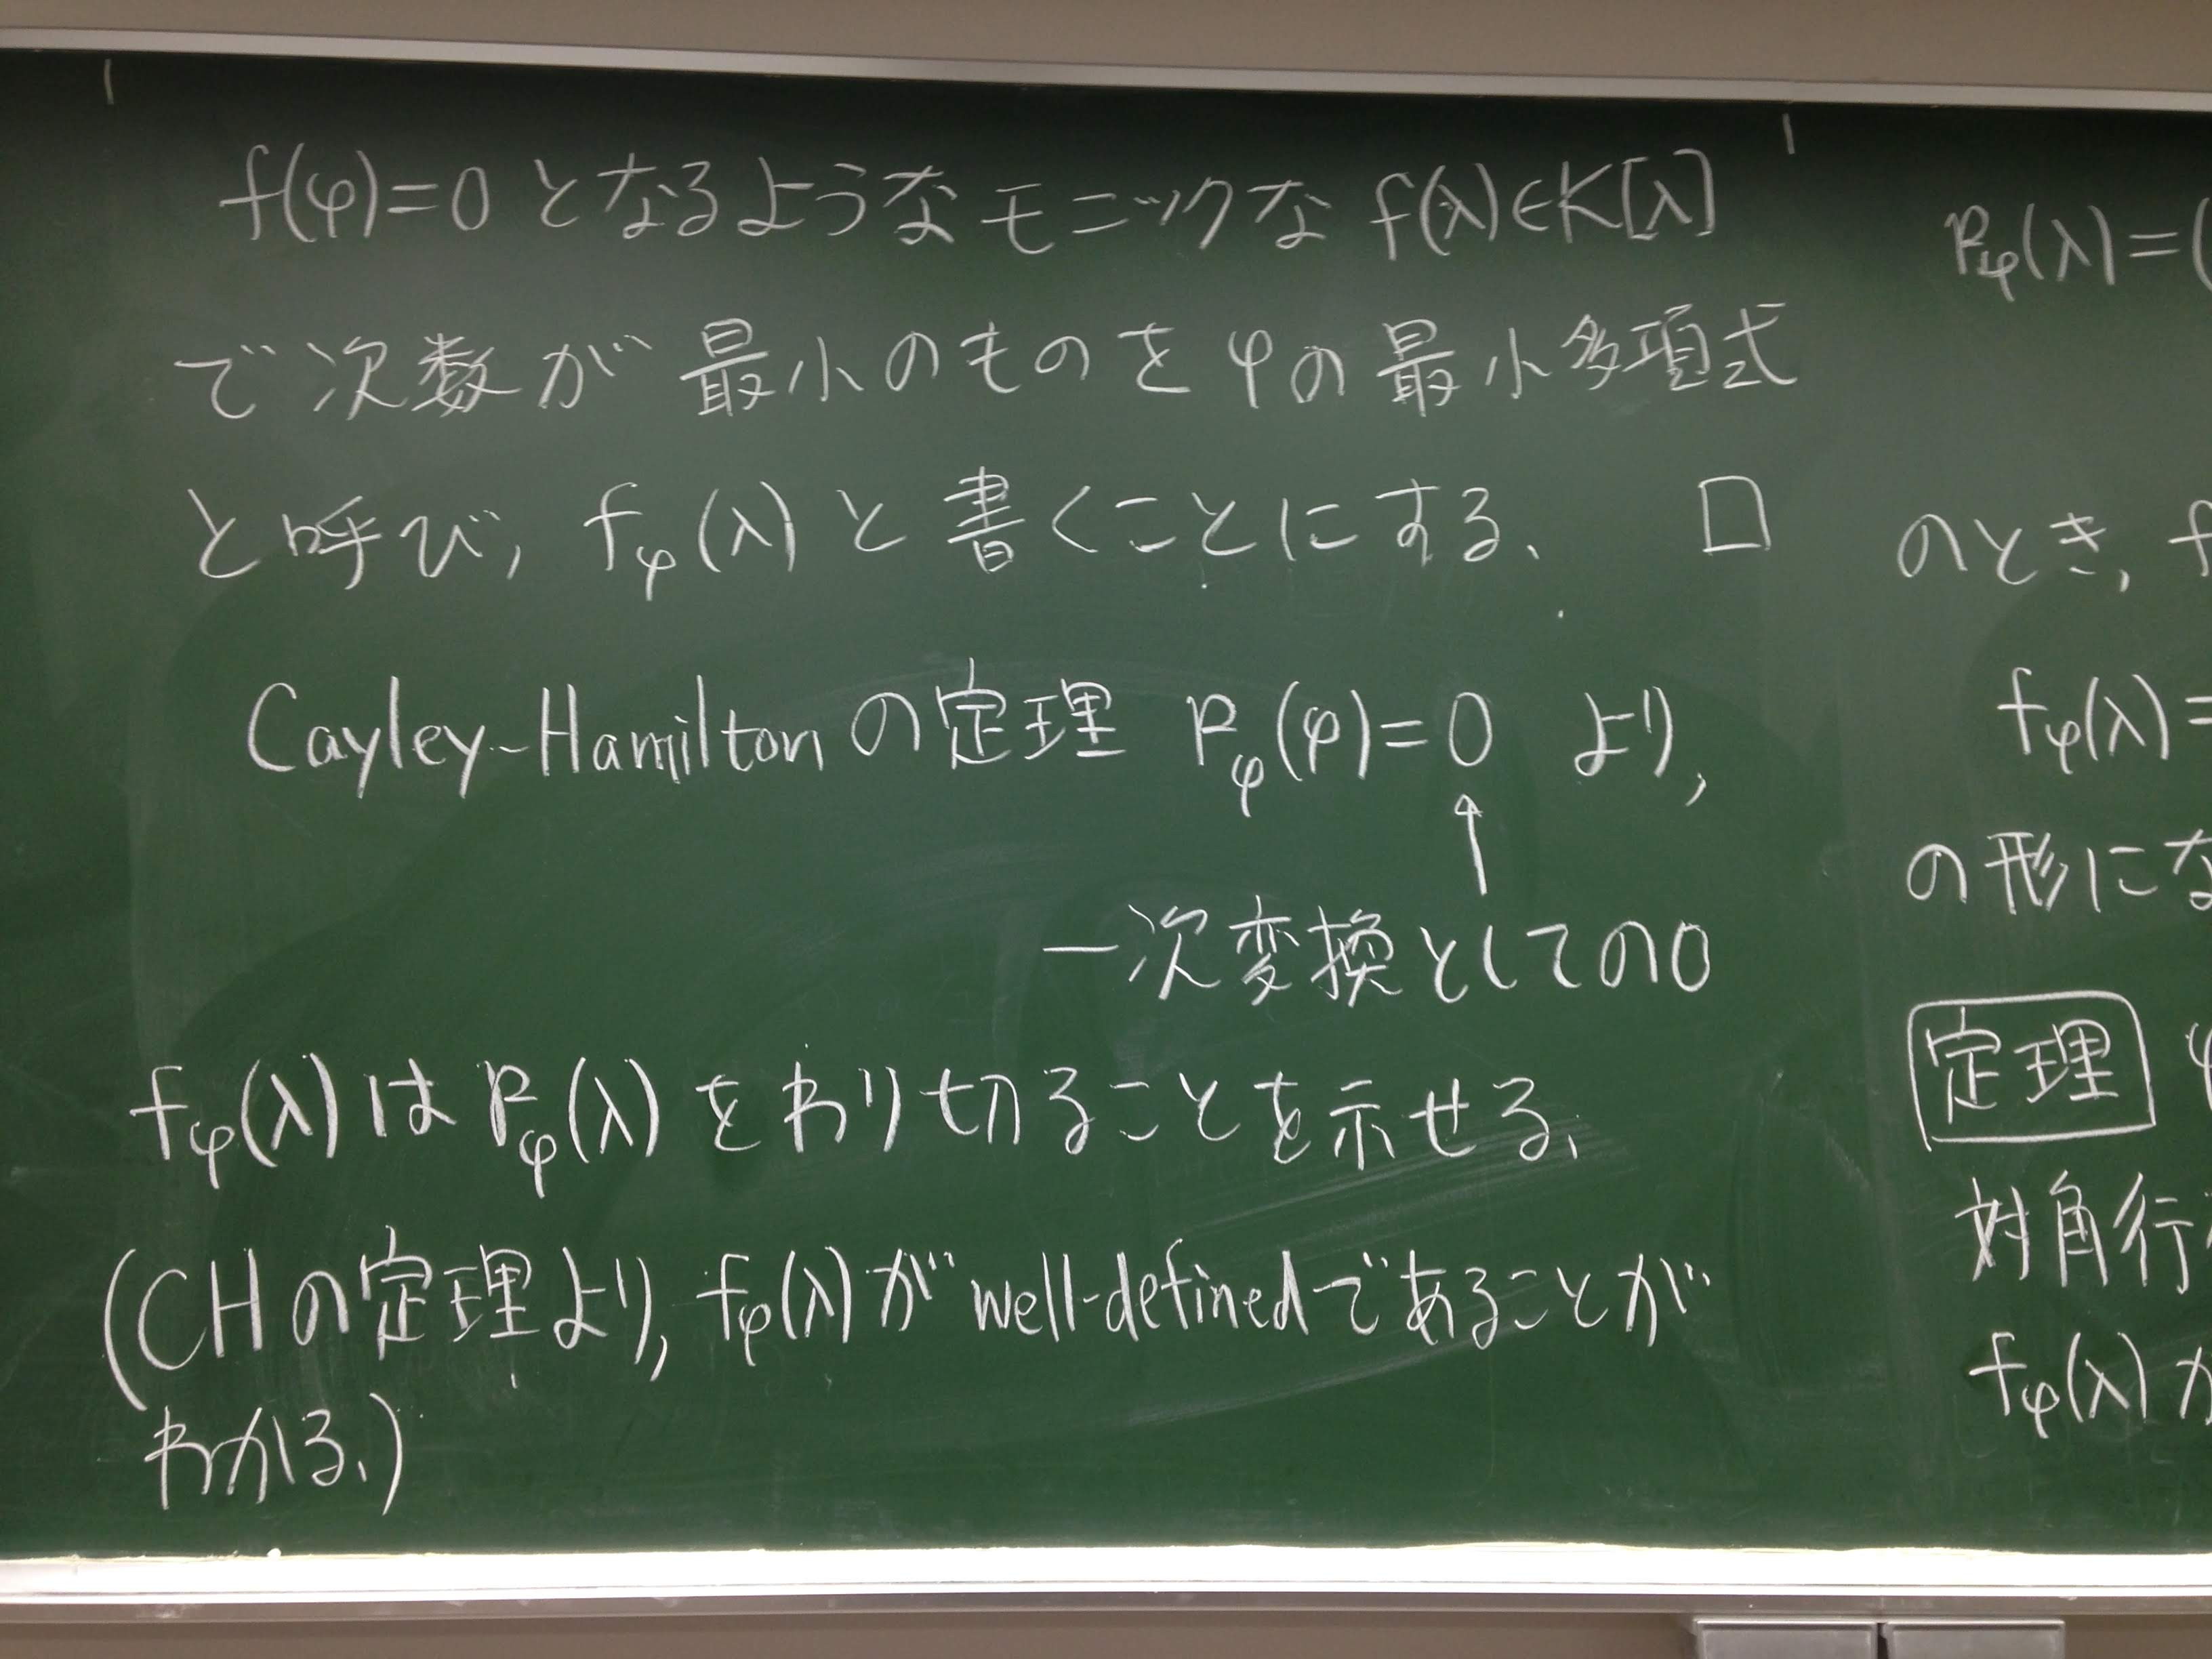 f(φ)=0 となるようなモニックな f(λ)∈K[λ]
で次数が最小のものをφの最小多項式
と呼び, fφ(λ) と書くことにする、 □
Cayley-Hamilton の定理 Pφ(φ)=0 より,
↑
一次変換としての0
fφ(λ) は Pφ(λ) をわり切ることを示せる、
(CHの定理より, fφ(λ)がwell-definedであることが
わかる、)
Pφ(λ)=(
のとき, f
fφ(λ)=
の形にな
定理 φ
対角行
fφ(λ)